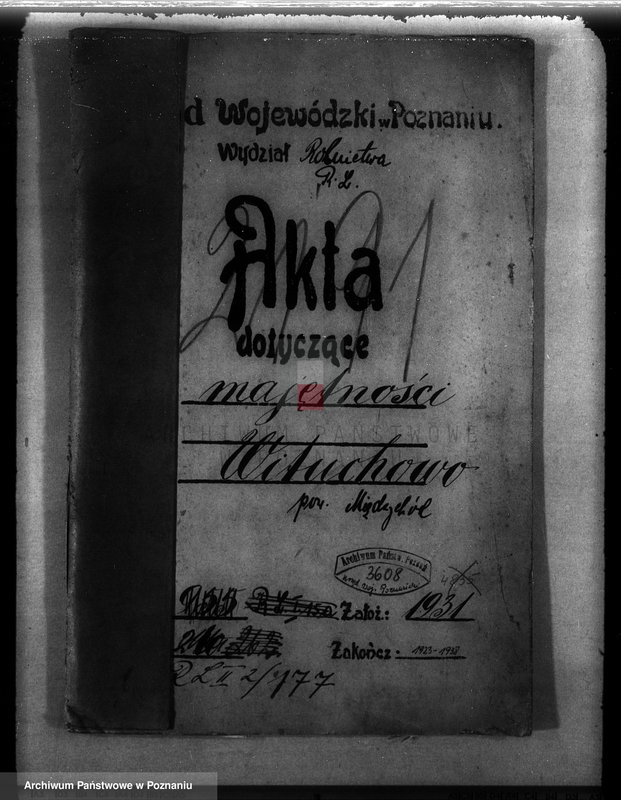 d Wojewódzki w Poznaniu.
Wydział Rolnictwa
R.L.
Akta
dotyczące
majętności
ARCHIWUM PAŃSTWOWE
Wituchowo
pow. Międzychód
Archiwum Państw. Poznań
3608
Założ.: 1931
Zakończ.: 1923-1938
R L II 2/177
Archiwum Państwowe w Poznaniu